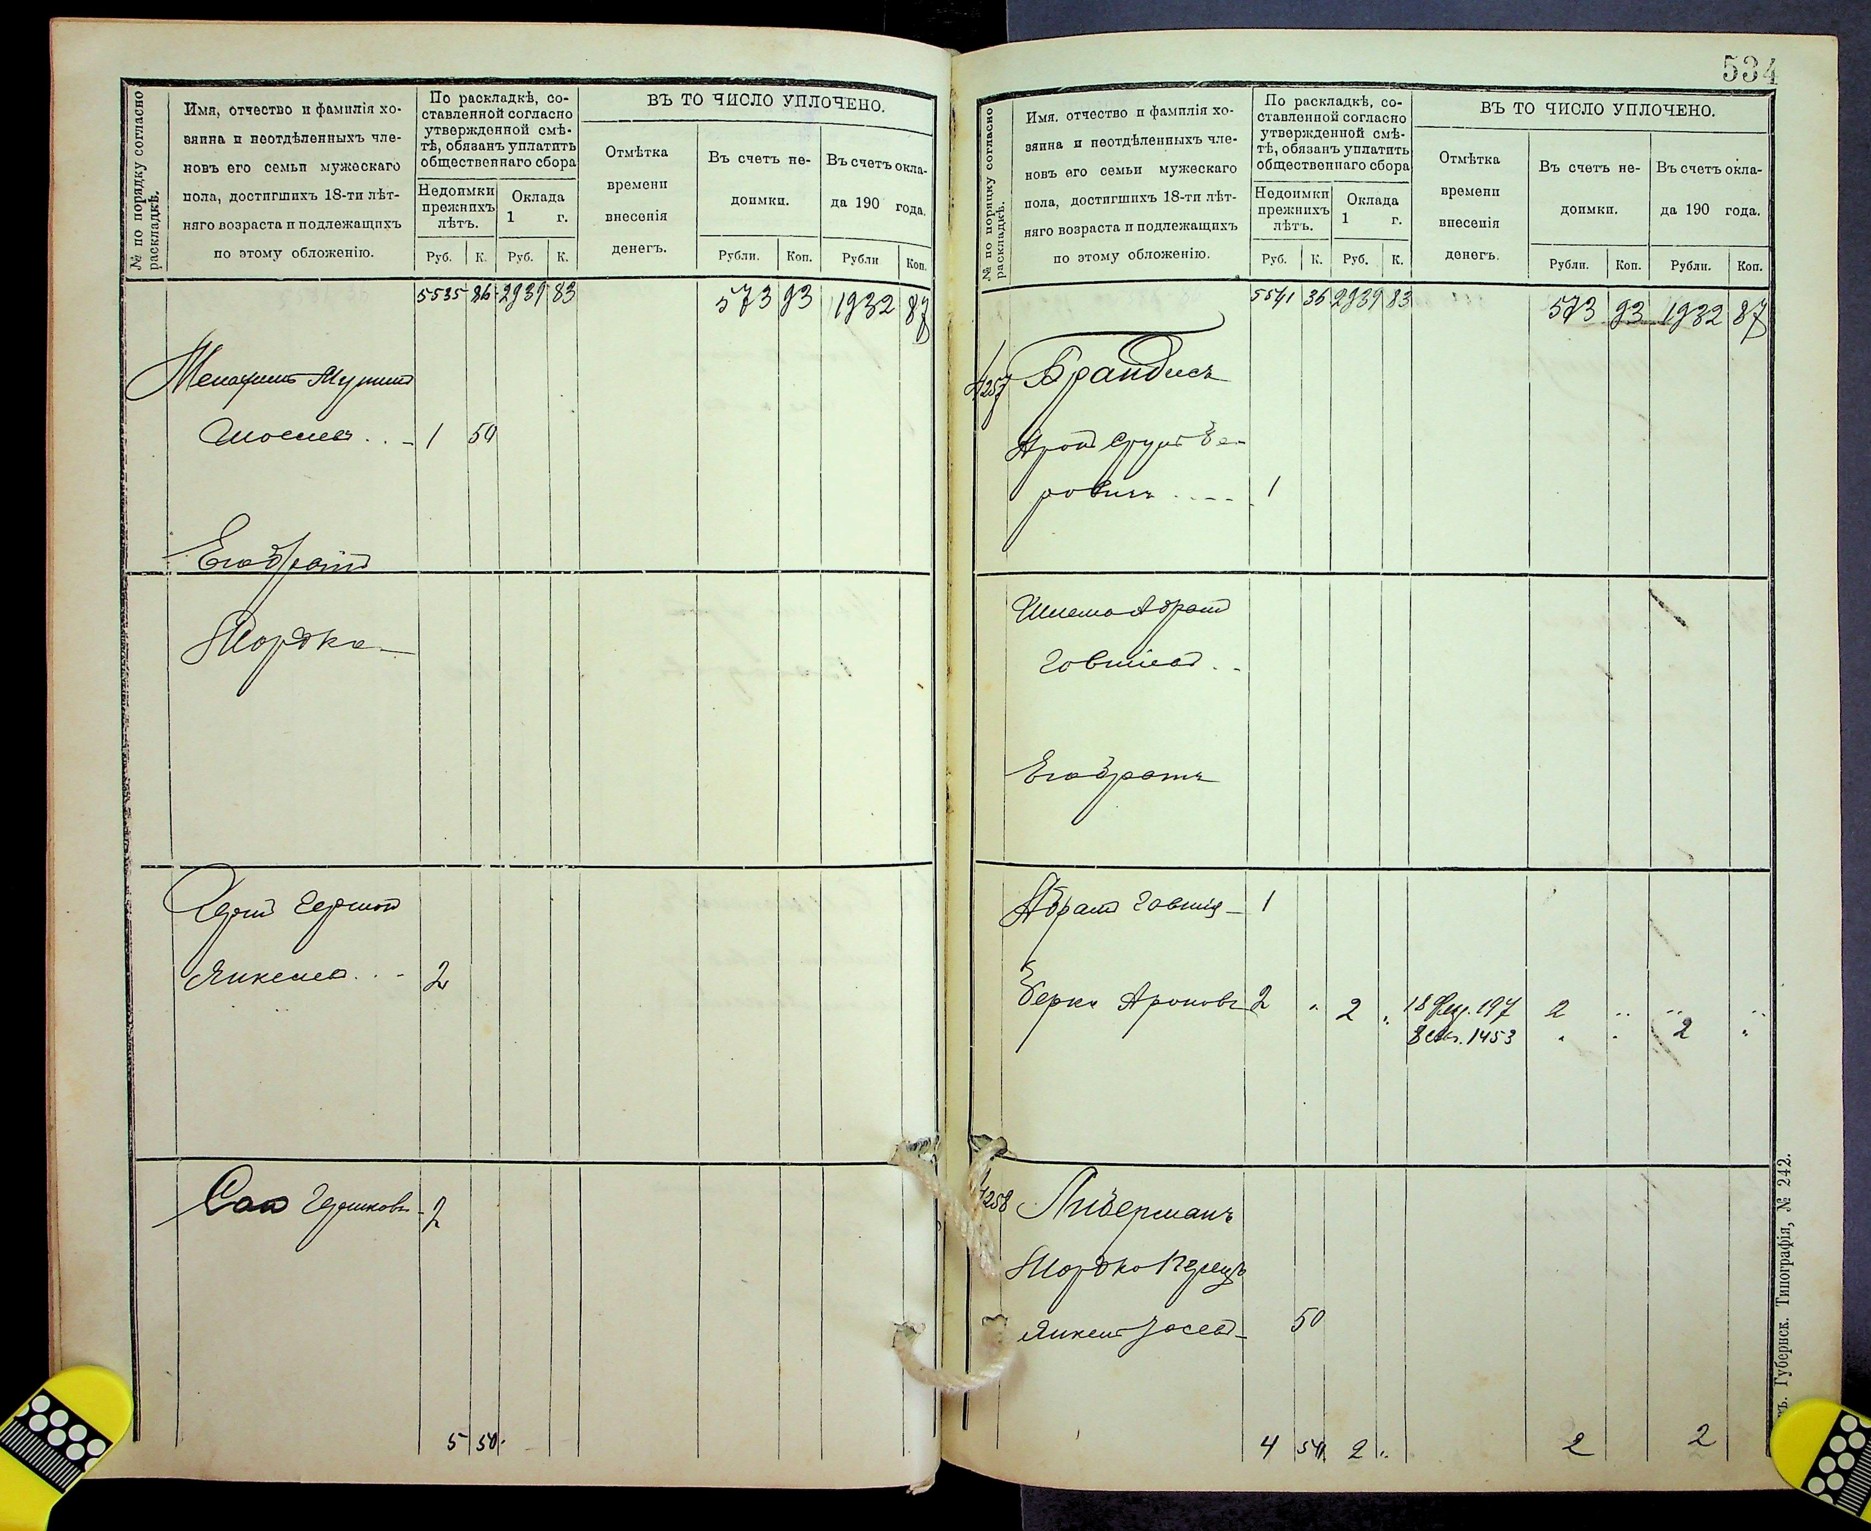 № по порядку согласно раскладкѣ.
Имя, отчество и фамилія хо-
зяина и неотдѣленныхъ чле-
новъ его семьи мужескаго
пола, достигшихъ 18-ти лѣт-
няго возраста и подлежащихъ
по этому обложенію.
По раскладкѣ, со-
ставленной согласно
утвержденной смѣ-
тѣ, обязанъ уплатить
общественнаго сбора
Недоимки
прежнихъ
лѣтъ.
Оклада
1 г.
Руб. К. Руб. К.
ВЪ ТО ЧИСЛО УПЛОЧЕНО.
Отмѣтка
времени
внесенія
денегъ.
Въ счетъ не-
доимки.
Въ счетъ окла-
да 190 года.
Рубли. Коп. Рубли Коп.
5535 86 2939 83 573 93 1932 87
Мошковъ . . - 1 50
Его братъ
Мордко
Янкелев . . - 2
Гершковъ - 2
5 50
534
№ по порядку согласно раскладкѣ.
Имя, отчество и фамилія хо-
зяина и неотдѣленныхъ чле-
новъ его семьи мужескаго
пола, достигшихъ 18-ти лѣт-
няго возраста и подлежащихъ
по этому обложенію.
По раскладкѣ, со-
ставленной согласно
утвержденной смѣ-
тѣ, обязанъ уплатить
общественнаго сбора
Недоимки
прежнихъ
лѣтъ.
Оклада
1 г.
Руб. К. Руб. К.
ВЪ ТО ЧИСЛО УПЛОЧЕНО.
Отмѣтка
времени
внесенія
денегъ.
Въ счетъ не-
доимки.
Въ счетъ окла-
да 190 года.
Рубли. Коп. Рубли. Коп.
5541 36 2939 83 573 93 1932 87
1257 Брандисъ
Аронъ
ровичъ . . - - 1
Шлема Абрам
Говшіев . -
Его братъ
Абрам Говшія - 1
Берко Ароновъ 2 " 2 " 18 Фев. 197 2 " " "
1453 " " 2 "
1258 Либерманъ
Мордко Перецъ
Янкел Іосел - 50
4 50 2 " 2 2
Губернск. Типографія, № 242.